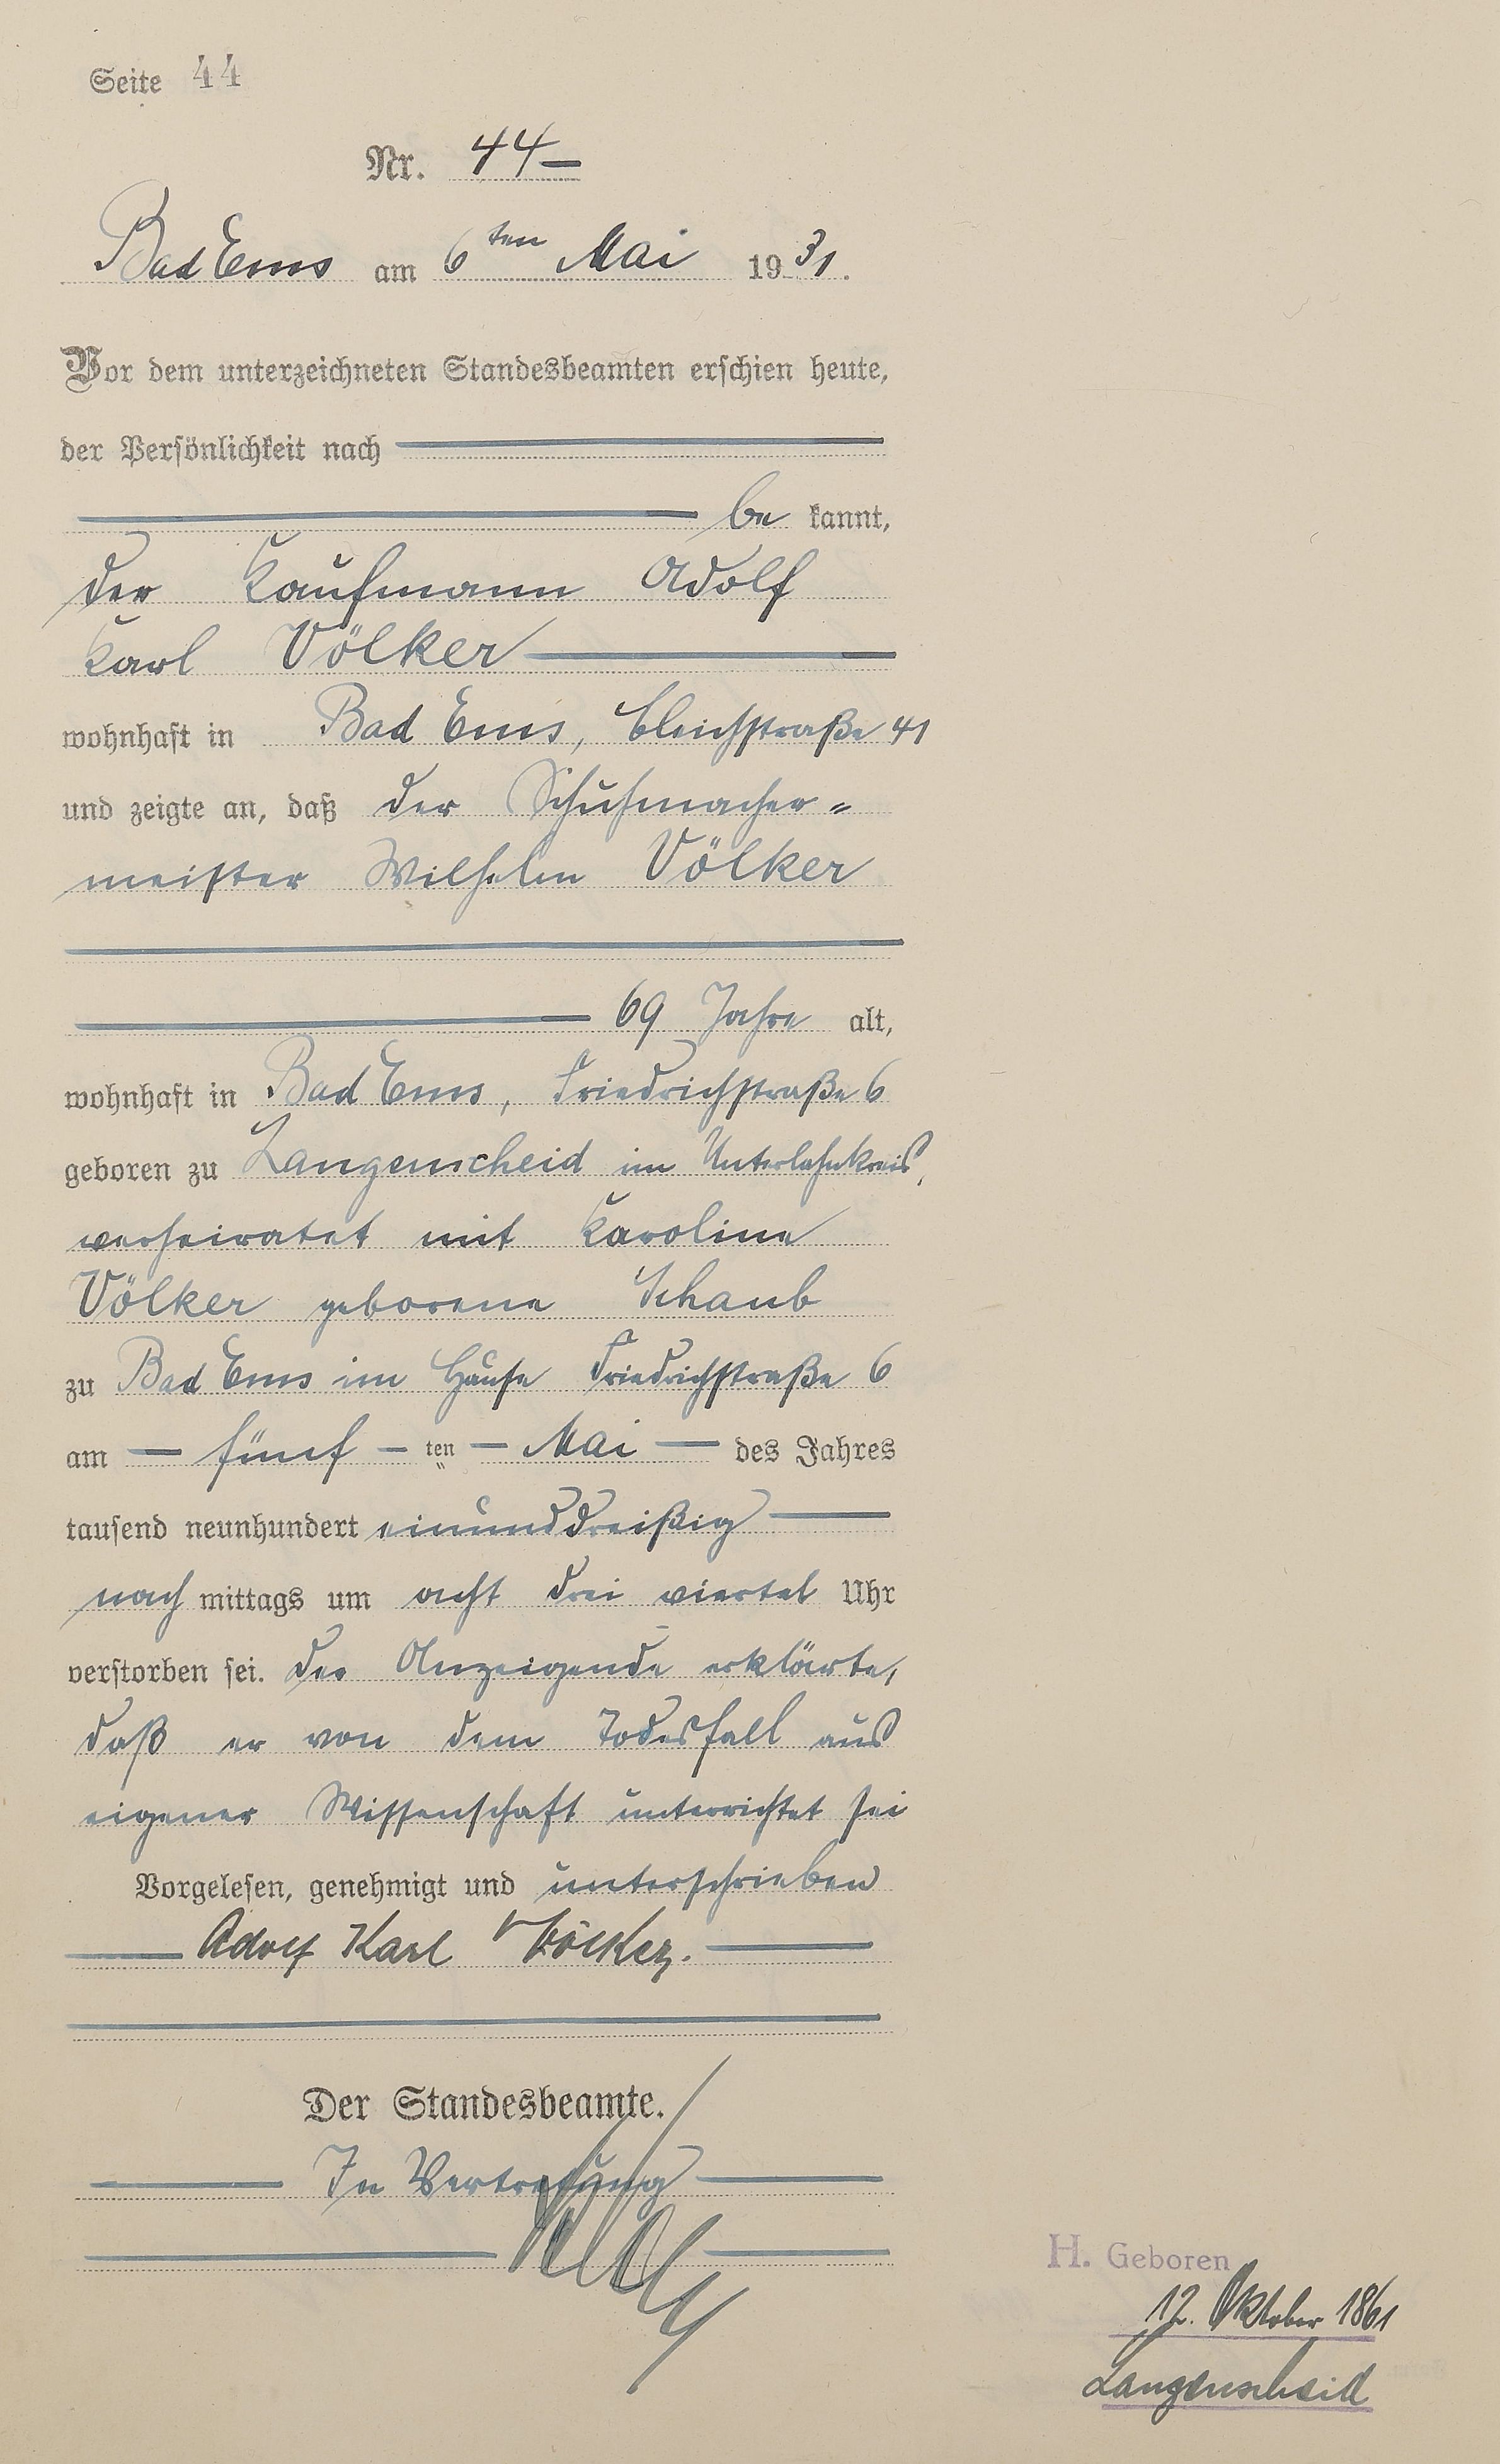 Seite 44
Nr. 44
Bad Ems am 6ten Mai 1931.
Vor dem unterzeichneten Standesbeamten erschien heute,
der Persönlichkeit nach
be kannt,
der Kaufmann Adolf
Karl Völker
wohnhaft in Bad Ems, Bleichstraße 41
und zeigte an, daß der Schuhmacher-
meister Wilhelm Völker
69 Jahre alt,
wohnhaft in Bad Ems, Friedrichstraße 6
geboren zu Langenscheid im Unterlahnkreis,
verheiratet mit Karoline
Völker geborene Schaub
zu Bad Ems im Hause Friedrichstraße 6
am fünf ten Mai des Jahres
tausend neunhundert einunddreißig
nach mittags um acht drei viertel Uhr
verstorben sei. Der Anzeigende erklärte,
daß er von dem Todesfall aus
eigener Wissenschaft unterrichtet sei
Vorgelesen, genehmigt und unterschrieben
Adolf Karl Völker.
Der Standesbeamte.
In Vertretung
H. Geboren
12. Oktober 1861
Langenscheid